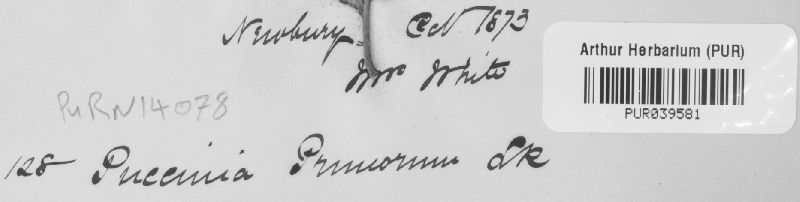 Newbury. Oct 1873
Mr White
Arthur Herbarium (PUR)
PUR039581
PURN14078
128 Puccinia Prunorum Lk